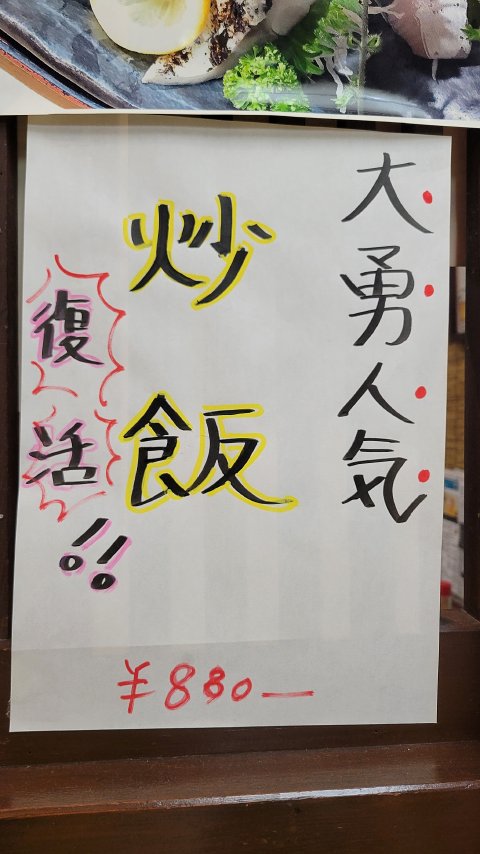 大勇人気
炒飯
復活!!
¥880ー